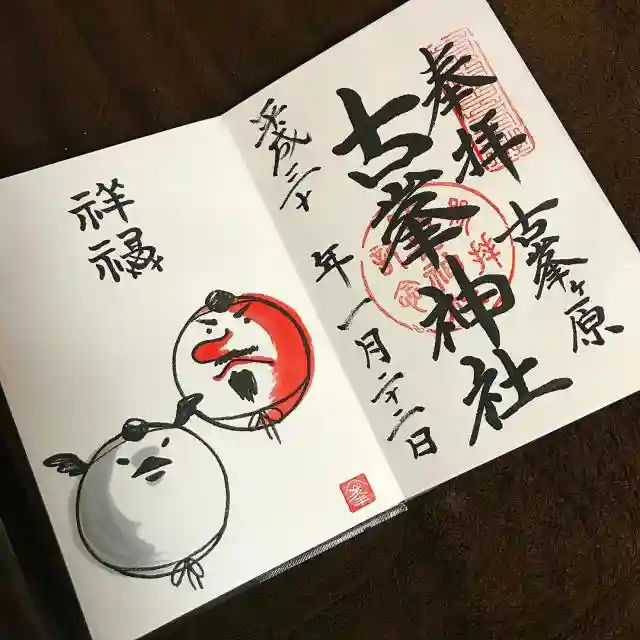 奉拝
古峯ヶ原
古峯神社
平成三十年一月二十二日
祥福